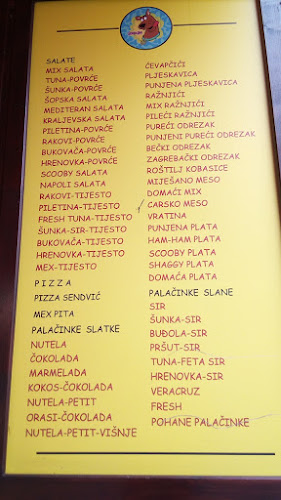 SALATE
MIX SALATA
TUNA-POVRĆE
ŠUNKA-POVRĆE
ŠOPSKA SALATA
MEDITERAN SALATA
KRALJEVSKA SALATA
PILETINA-POVRĆE
RAKOVI-POVRĆE
BUKOVAČA-POVRĆE
HRENOVKA-POVRĆE
SCOOBY SALATA
NAPOLI SALATA
RAKOVI-TIJESTO
PILETINA-TIJESTO
FRESH TUNA-TIJESTO
ŠUNKA-SIR-TIJESTO
BUKOVAČA-TIJESTO
HRENOVKA-TIJESTO
MEX-TIJESTO
PIZZA
PIZZA SENDVIĆ
MEX PITA
PALAČINKE SLATKE
NUTELA
ČOKOLADA
MARMELADA
KOKOS-ČOKOLADA
NUTELA-PETIT
ORASI-ČOKOLADA
NUTELA-PETIT-VIŠNJE
ĆEVAPČIĆI
PLJESKAVICA
PUNJENA PLJESKAVICA
RAŽNJIĆI
MIX RAŽNJIĆI
PILEĆI RAŽNJIĆI
PUREĆI ODREZAK
PUNJENI PUREĆI ODREZAK
BEČKI ODREZAK
ZAGREBAČKI ODREZAK
ROŠTILJ KOBASICE
MIJEŠANO MESO
DOMAĆI MIX
CARSKO MESO
VRATINA
PUNJENA PLATA
HAM-HAM PLATA
SCOOBY PLATA
SHAGGY PLATA
DOMAĆA PLATA
PALAČINKE SLANE
SIR
ŠUNKA-SIR
BUĐOLA-SIR
PRŠUT-SIR
TUNA-FETA SIR
HRENOVKA-SIR
VERACRUZ
FRESH
POHANE PALAČINKE